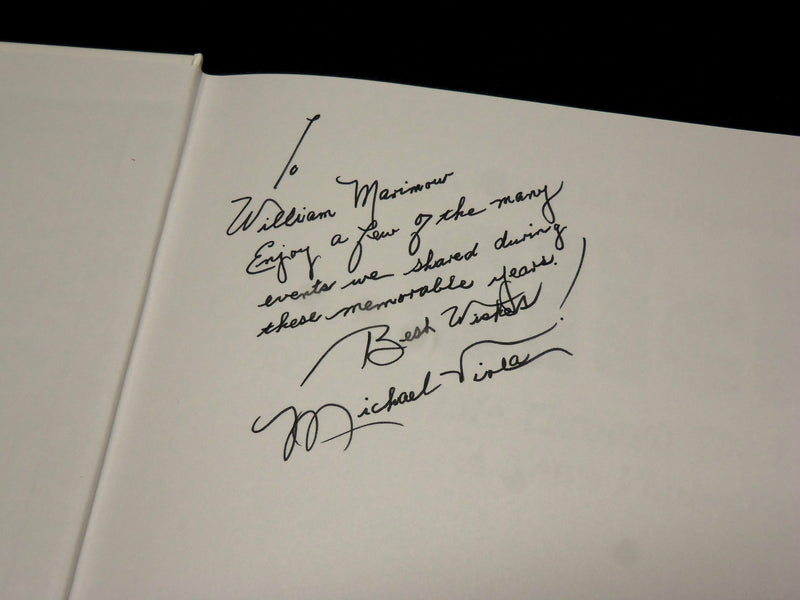 To
William Marimow
Enjoy a few of the many
events we shared during
these memorable years.
Best Wishes!
Michael Viola